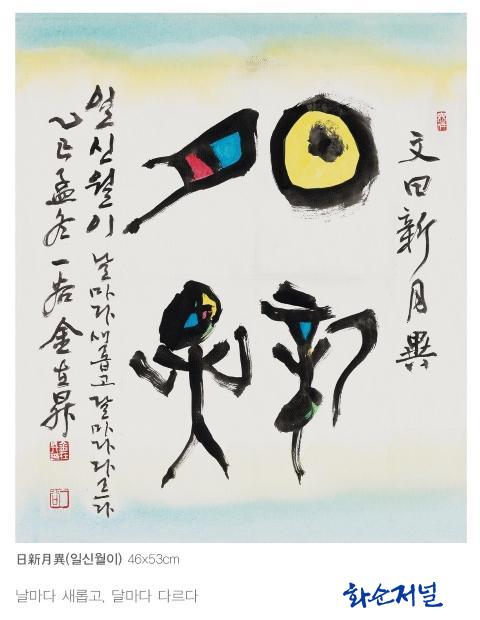 文日新月異
日新
月異
일신월이 날마다 새롭고 달마다 다르다
乙巳孟冬 一岩 金在昇
日新月異(일신월이) 46x53cm
날마다 새롭고, 달마다 다르다
화순저널